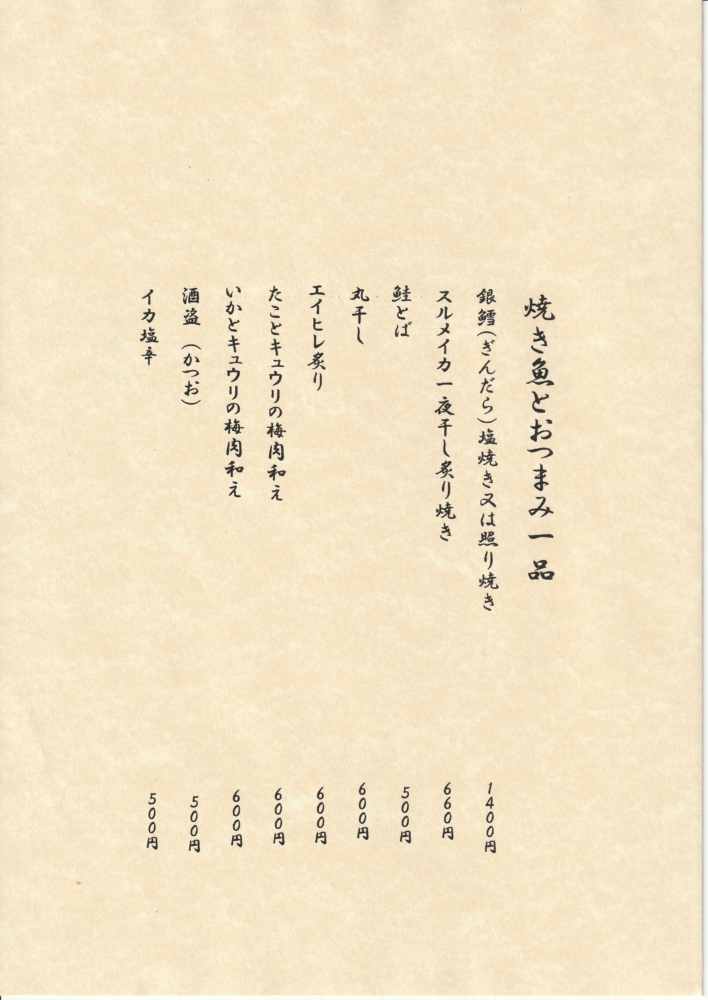 焼き魚とおつまみ一品
銀鱈(ぎんだら)塩焼き又は照り焼き 1400円
スルメイカ一夜干し炙り焼き 660円
鮭とば 500円
丸干し 600円
エイヒレ炙り 600円
たことキュウリの梅肉和え 600円
いかとキュウリの梅肉和え 600円
酒盗 (かつお) 500円
イカ塩辛 500円